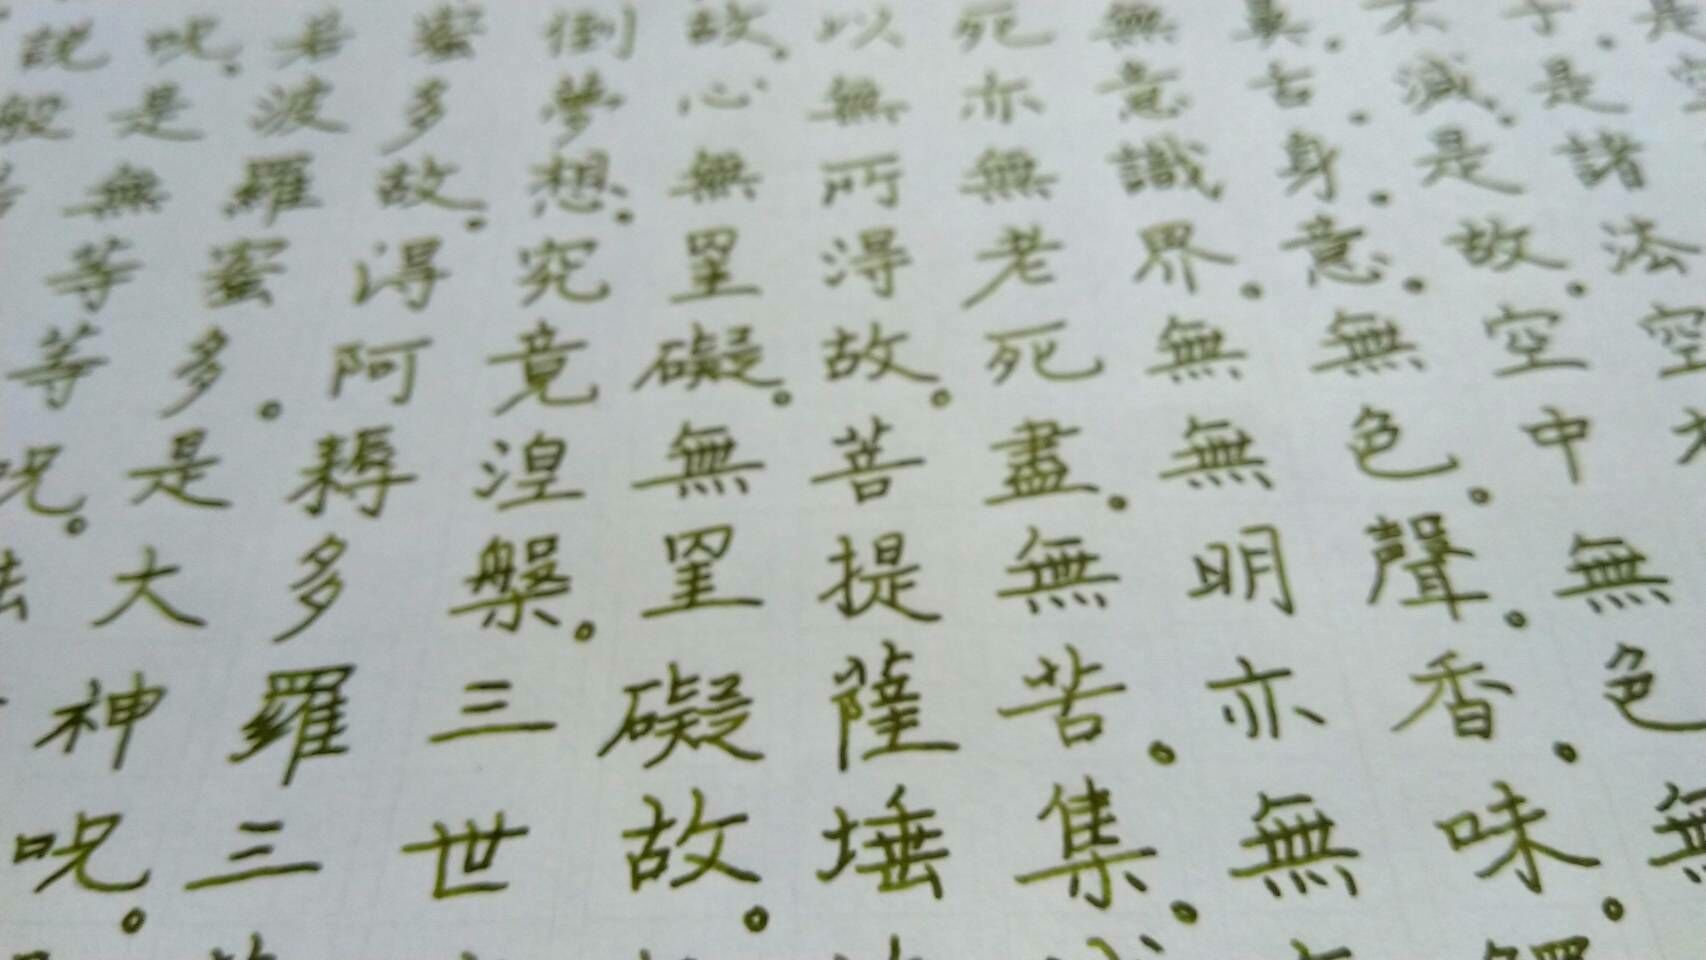 是空
子。是諸法空
不減。是故。空中無色無
鼻。舌。身。意。無色。聲。香。味。
無意識界。無無明亦無
死亦無老死盡。無苦。集。
以無所得故。菩提薩埵
故。心無罣礙。無罣礙故。
倒夢想。究竟涅槃。三世
蜜多故。得阿耨多羅三
若波羅蜜多。是大神呪。
呪。是無等等呪。
說般